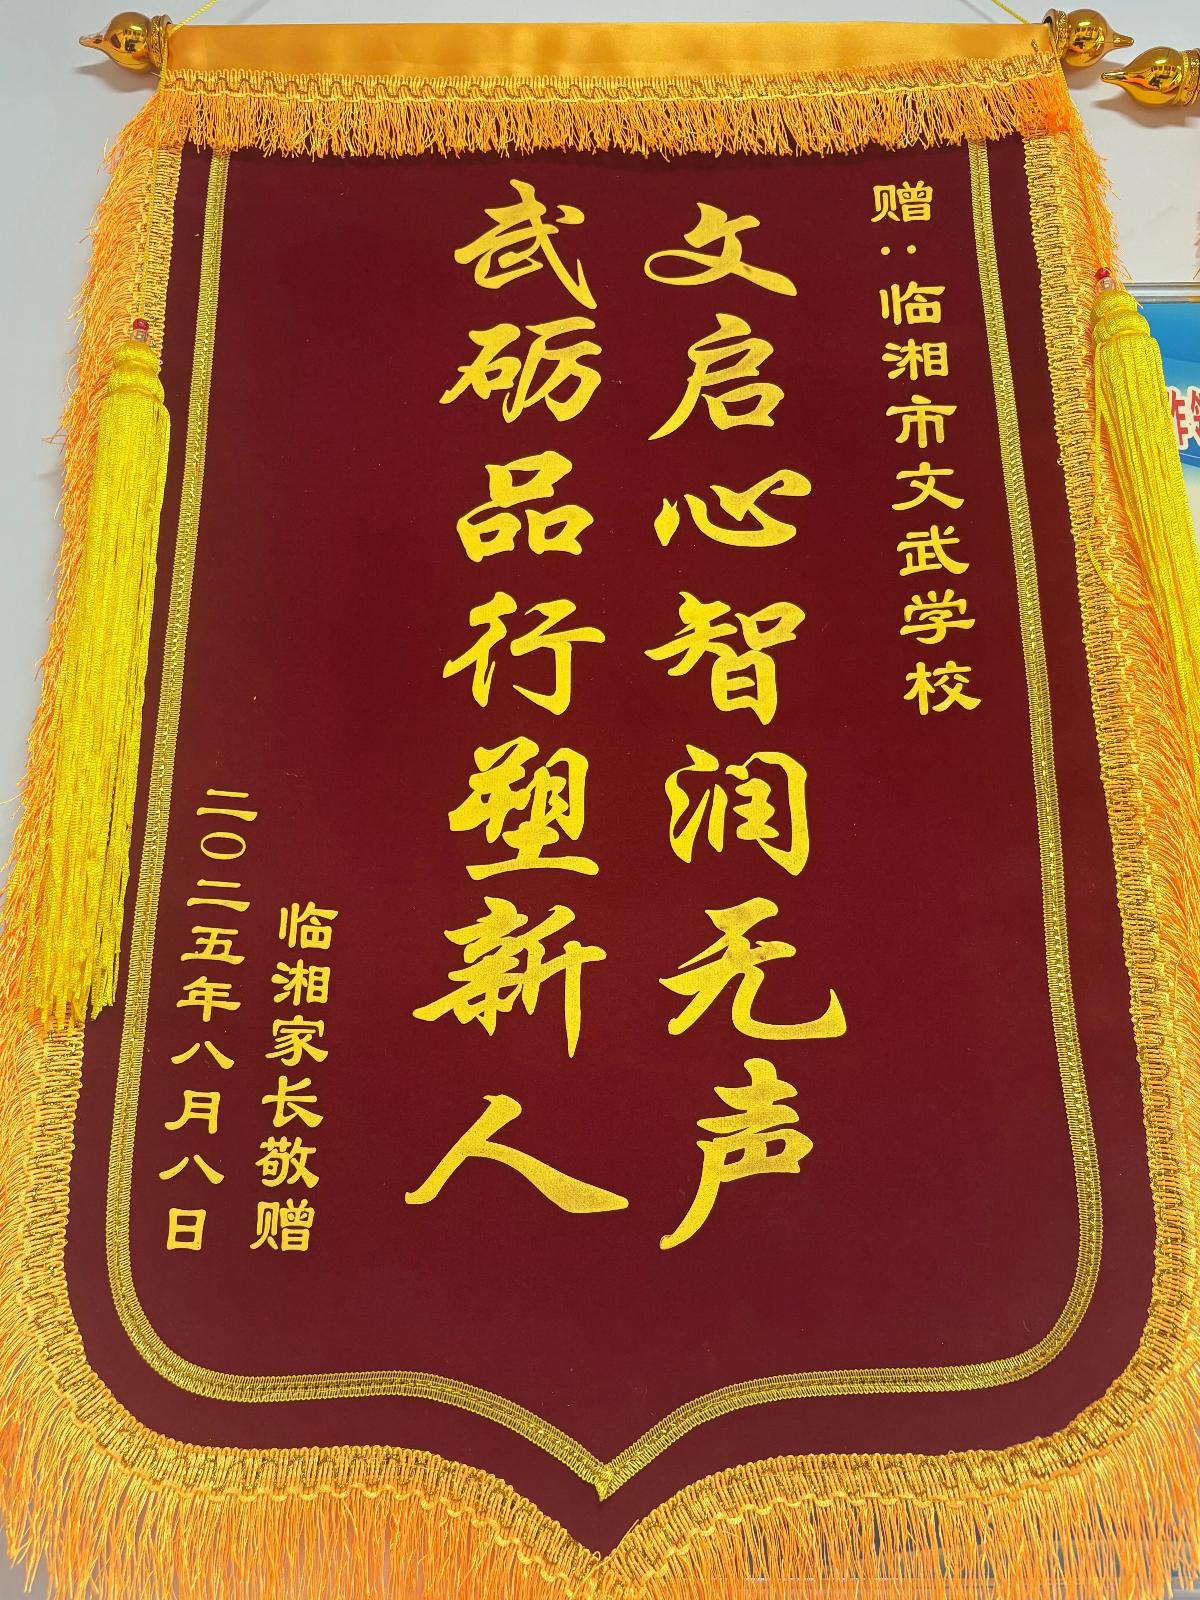 赠：临湘市文武学校
文启心智润无声
武砺品行塑新人
临湘家长敬赠
二〇二五年八月八日
作